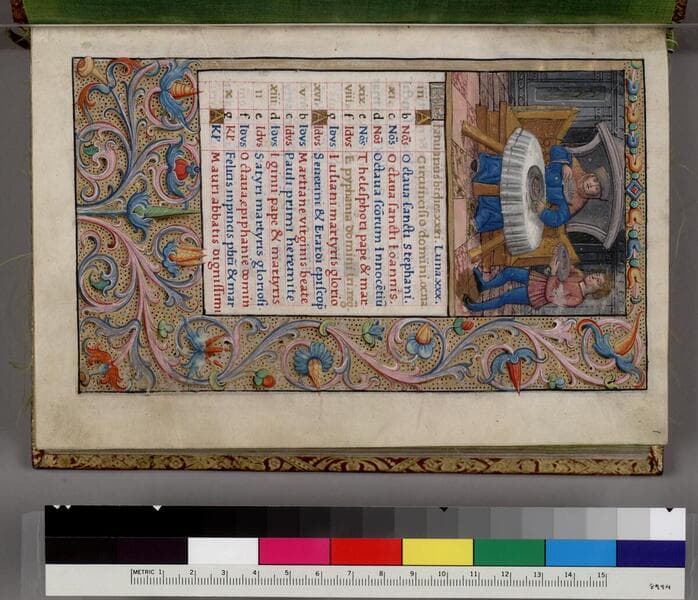 Ianuarius habet dies.xxxi. Luna.xxx.
iii A Circuncisio domini
b Nõs Octaua sancti Stephani.
xi c Nõs Octaua sancti Ioannis.
d Nõs Octaua sctorum Innocẽtiũ
xix e Nõs Thelesphori pape & mat
viii f Idus Epyphania domini
g Idus Iuliani martyris glorio
xvi A Idus Seuerini & Erardi episcop
v b Idus Martiane virginis beate
c Idus Pauli primi heremite
xiii d Idus Igini pape & martyris
ii e Idus Satyri martyris gloriosi.
f Idus Octaua epiphanie domin
x g KL Felicis inpincis pbri & mar
A KL Mauri abbatis dignissimi
METRIC 1 2 3 4 5 6 7 8 9 10 11 12 13 14 15